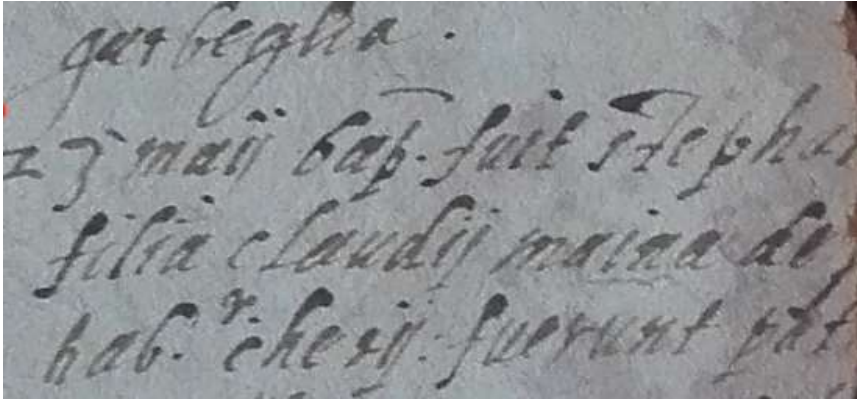 garbeglia.
23 maij bap. fuit stephan
filia claudij maina de
hab.r cherij: fuerunt pat